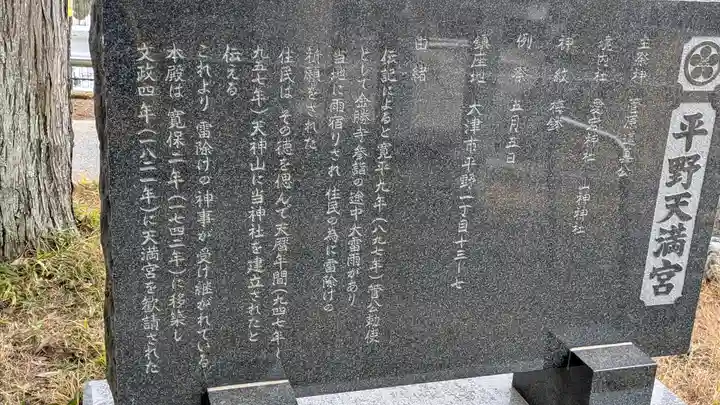 平野天満宮
主祭神 菅原道真公
境内社 愛宕神社 山神神社
神紋 梅鉢
例祭 五月五日
鎮座地 大津市平野一丁目十三ー七
由緒
伝記によると寛平九年(八九七年)菅公勅使
として金勝寺参詣の途中大雷雨があり
当地に雨宿りされ 住民の為に雷除けの
祈願をされた
住民は その徳を偲んで天暦年間(九四七年〜
九五七年)天神山に当神社を建立されたと
伝える
これより 雷除けの神事が受け継がれている
本殿は 寛保二年(一七四二年)に移築し
文政四年(一八二一年)に天満宮を歓請された